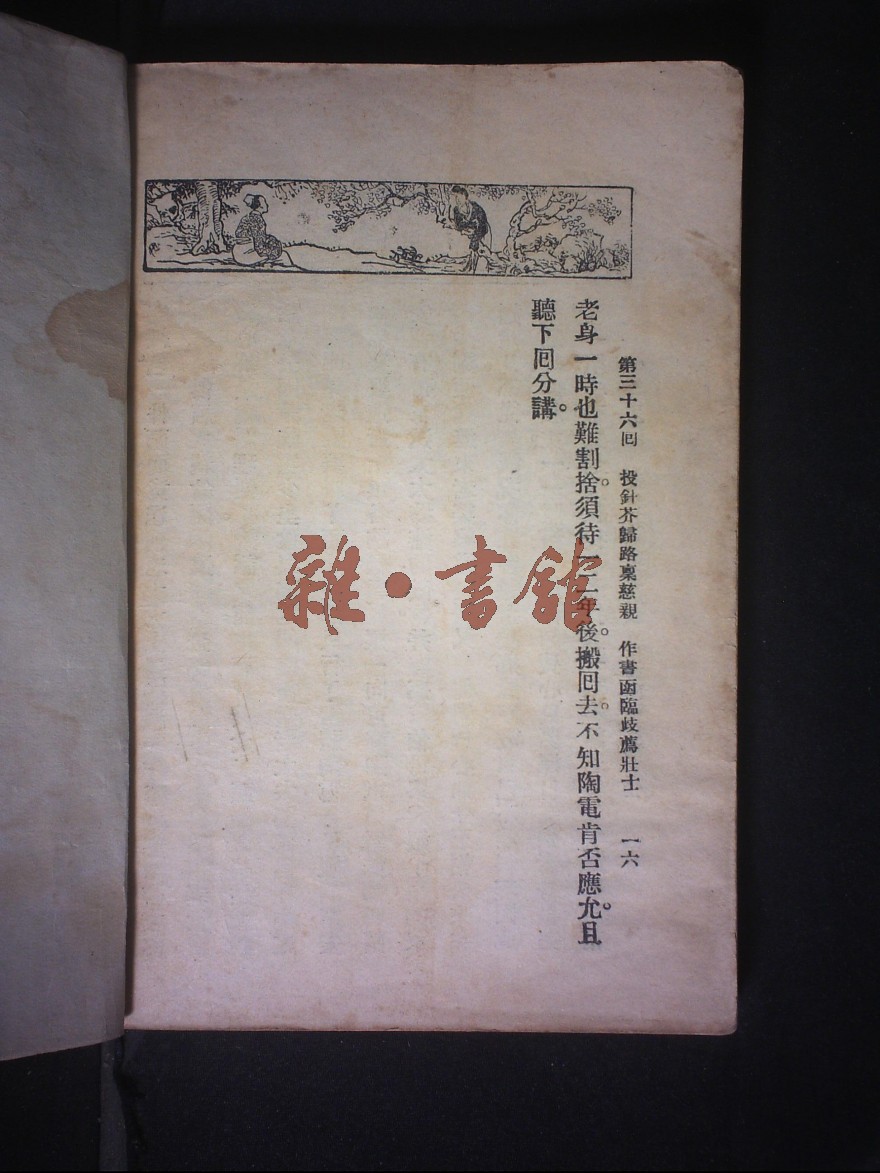 第三十六囘　投針芥歸路稟慈親　作書函臨歧薦壯士　一六
老身一時也難割捨。須待一二年後。搬囘去。不知陶電肯否應允。且
聽下囘分講。
雜·書館